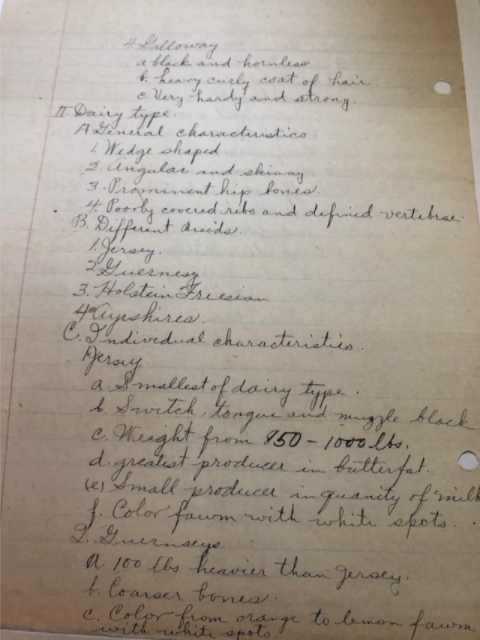 4. Galloway
a black and hornless
b. heavy curly coat of hair.
c. Very hardy and strong.
II. Dairy type.
A General characteristics.
1. Wedge shaped.
2. Angular and skinny
3. Prominent hip bones.
4. Poorly covered ribs and defined vertebrae
B. Different breeds.
1. Jersey.
2. Guernesy
3. Holstein Friesian
4 Ayrshires.
C. Individual characteristics.
Jersey
a. Smallest of dairy type.
b. Switch, tongue and muzzle black
c. Weight from 850 - 1000 lbs.
d. greatest producer in butterfat.
(e) Small producer in quanity of milk
f. Color fawm with white spots.
2. Guernseys.
a 100 lbs heavier than Jersey.
b. Coarser bones.
c. Color from orange to lemon fawm
with white spots.